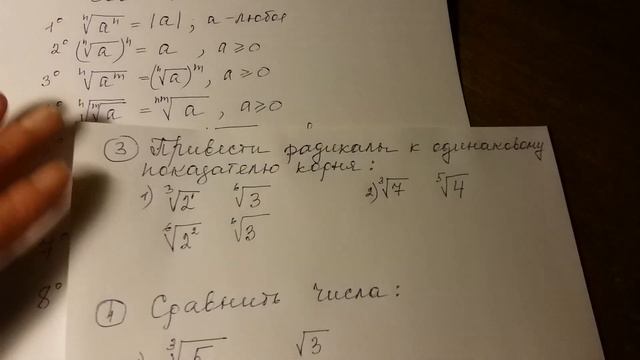 1° ⁿ√aⁿ = |a| ; a - любое
2° (ⁿ√a)ⁿ = a , a ≥ 0
3° ⁿ√aᵐ = (ⁿ√a)ᵐ, a ≥ 0
ⁿ√ᵐ√a = ⁿᵐ√a , a ≥ 0
③ Привести радикалы к одинаковому
показателю корня :
1) ³√2¹ ⁶√3 2) ³√7 ⁵√4
⁶√2² ⁶√3
7°
8°
④ Сравнить числа :
√3